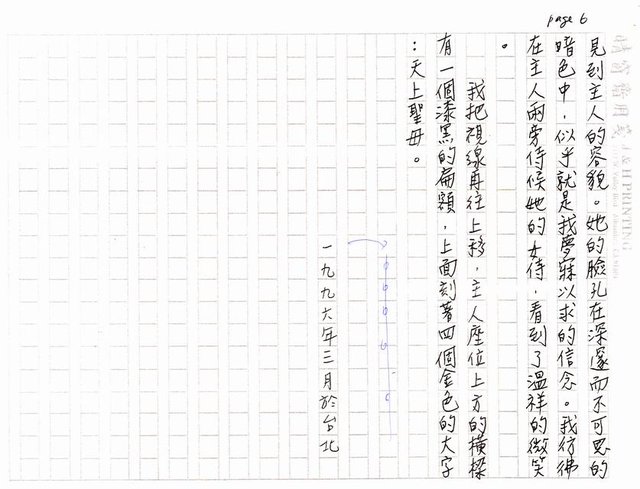 page 6
見到主人的容貌。她的臉孔在深邃而不可思的
暗色中，似乎就是我夢寐以求的信念。我彷彿
在主人兩旁侍候她的女侍，看到了溫祥的微笑
。
我把視線再往上移，主人座位上方的橫樑
有一個漆黑的扁額，上面刻著四個金色的大字
：天上聖母。
一九九六年三月於台北